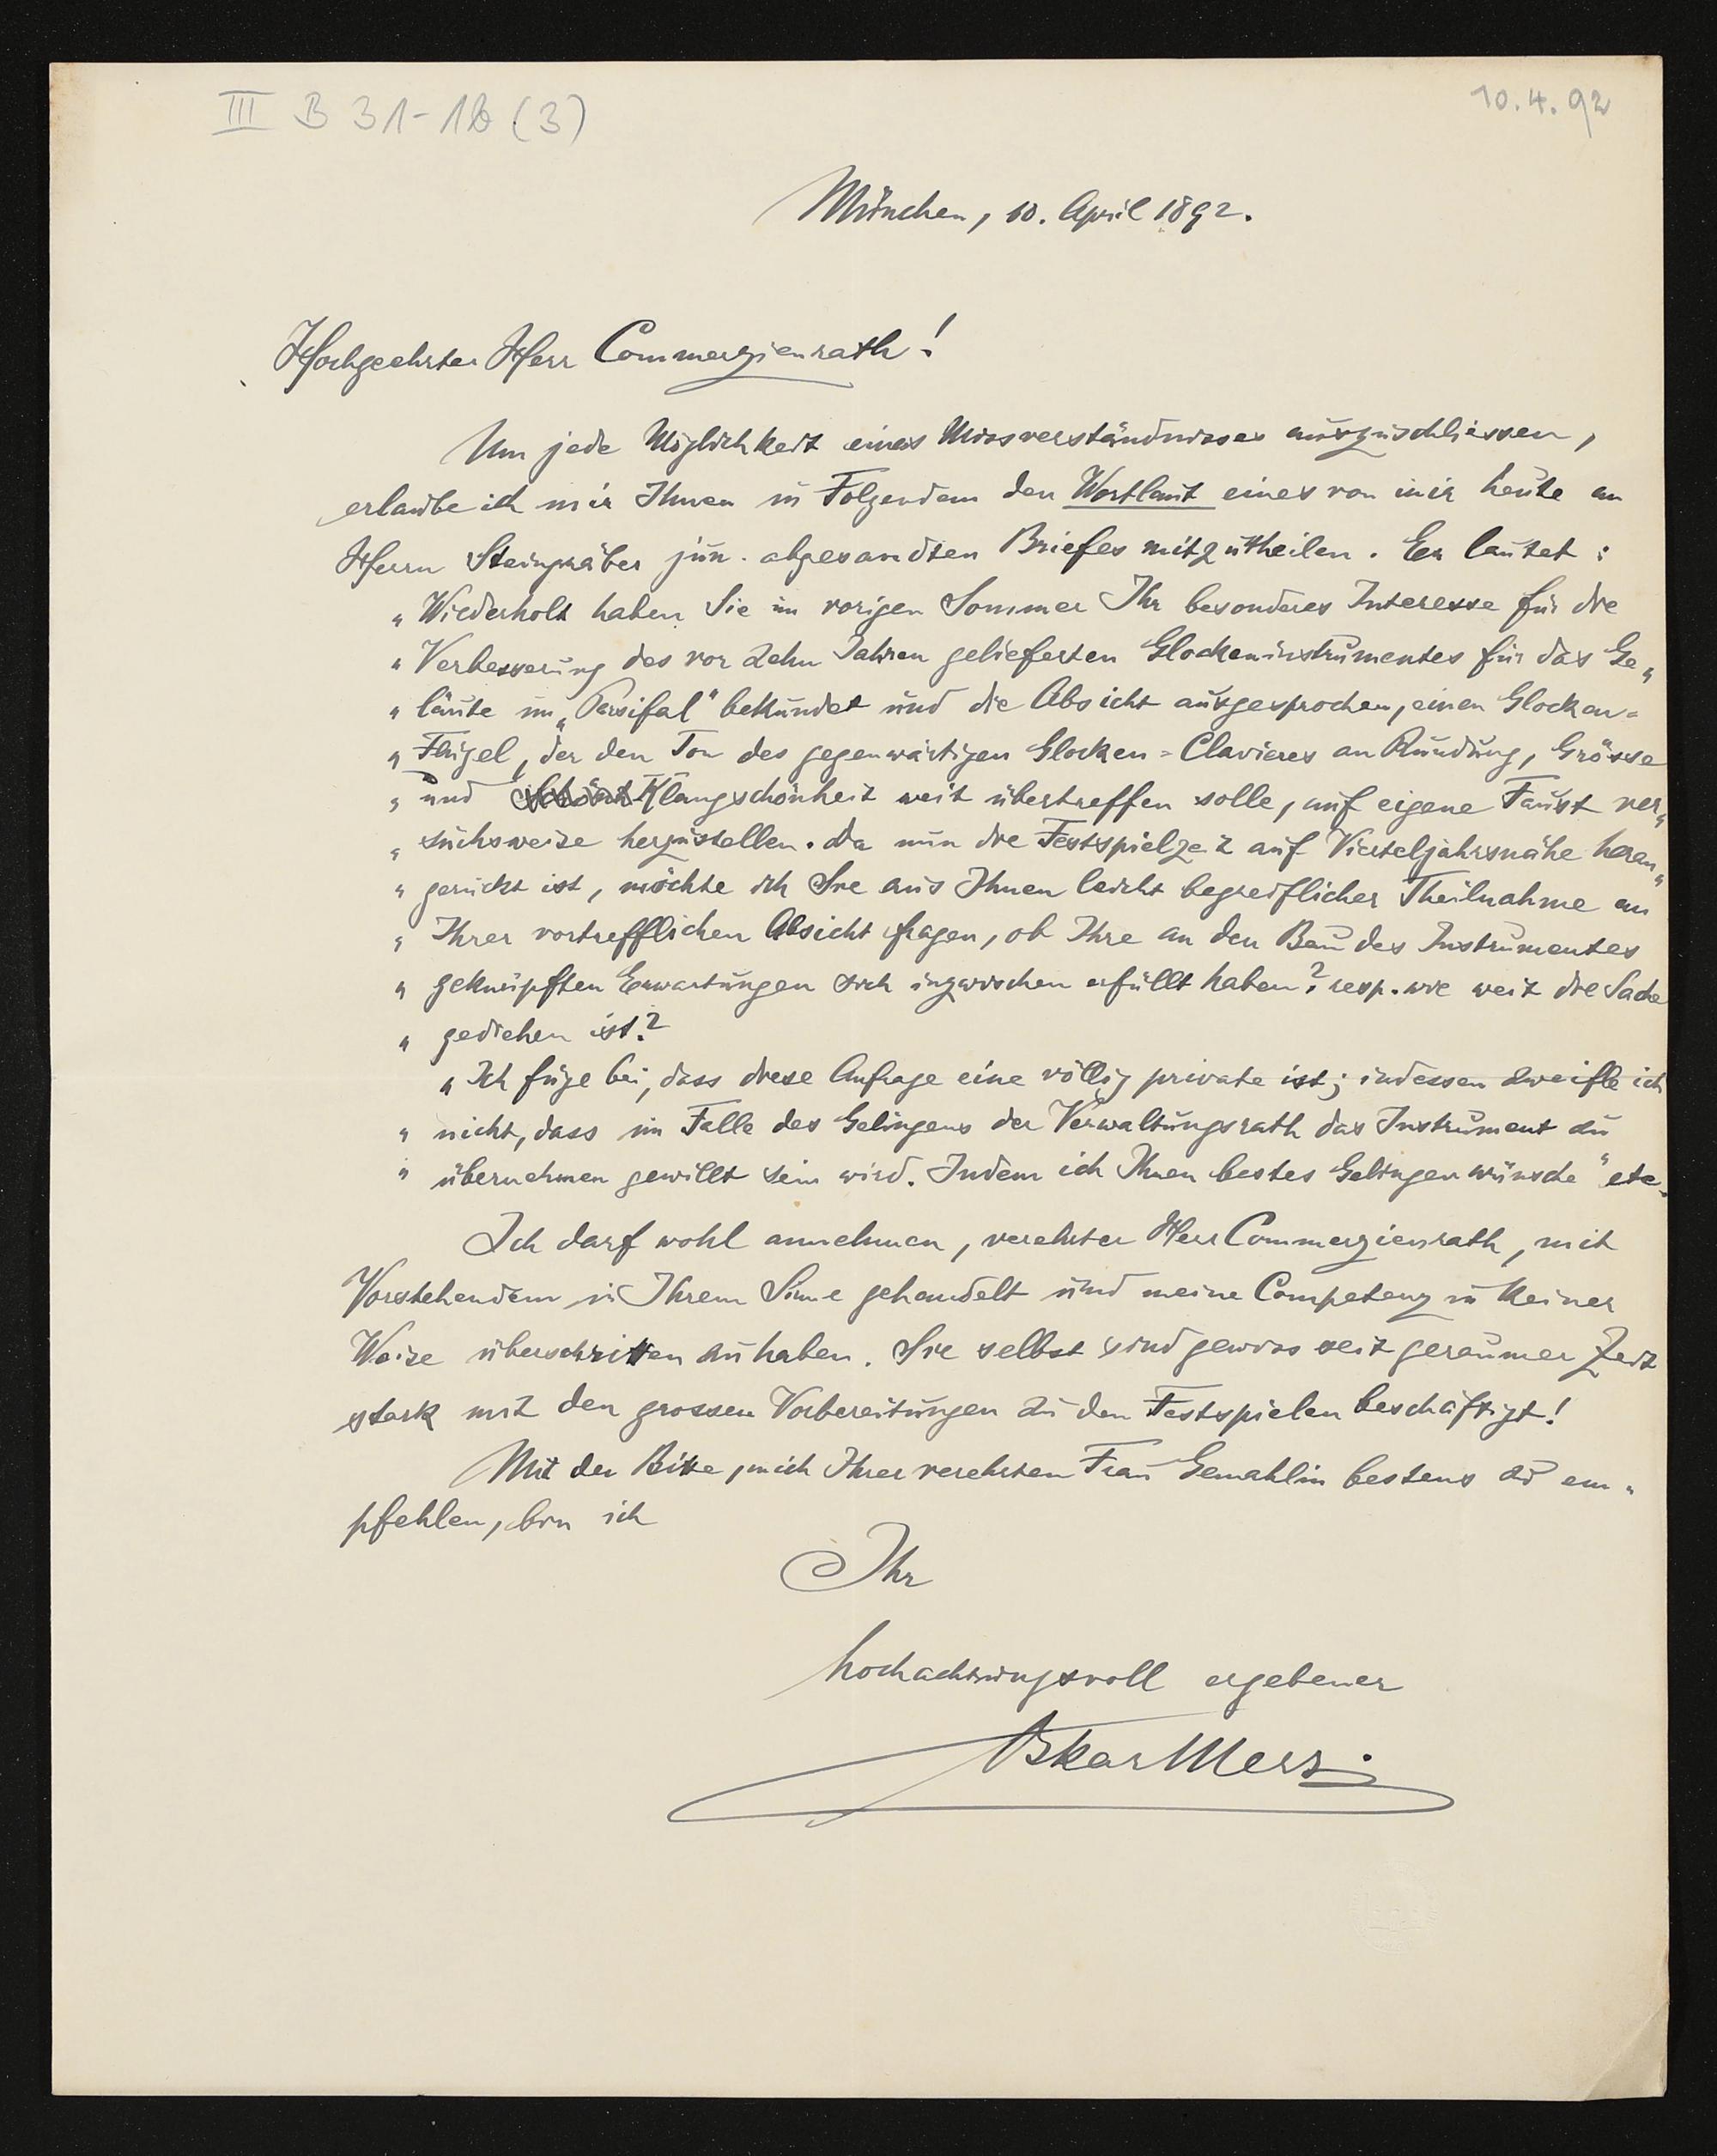 III B 31-1b (3)
10.4.92
München, 10. April 1892.
Hochgeehrter Herr Commerzienrath!
Um jede Möglichkeit eines Missverständnisses auszuschliessen,
erlaube ich mir Ihnen in Folgendem den Wortlaut eines von mir heute an
Herrn Steingräber jun. abgesandten Briefes mitzutheilen. Er lautet:
„Wiederholt haben Sie im vorigen Sommer Ihr besonderes Interesse für die
„Verbesserung des vor zehn Jahren gelieferten Glockeninstrumentes für das Ge„
„läute im „Parsifal" bekundet und die Absicht ausgesprochen, einen Glocken=
„Flügel, der den Ton des gegenwärtigen Glocken=Clavieres an Rundung, Grösse
„und Klangschönheit weit übertreffen solle, auf eigene Faust ver„
„suchsweise herzustellen. Da nun die Festspielzeit auf Vierteljahrsnähe heran„
„gerückt ist, möchte ich Sie aus Ihnen leicht begreiflicher Theilnahme an
„Ihrer vortrefflichen Absicht fragen, ob Ihre an den Bau des Instrumentes
„geknüpften Erwartungen sich inzwischen erfüllt haben? resp. wie weit die Sache
„gediehen ist?
„Ich füge bei, dass diese Anfrage eine völlig private ist; indessen zweifle ich
„nicht, dass im Falle des Gelingens der Verwaltungsrath das Instrument zu
„übernehmen gewillt sein wird. Indem ich Ihnen bestes Gelingen wünsche" etc.
Ich darf wohl annehmen, verehrter Herr Commerzienrath, mit
Vorstehendem in Ihrem Sinne gehandelt und meine Competenz in keiner
Weise überschritten zu haben. Sie selbst sind gewiss seit geraumer Zeit
stark mit den grossen Vorbereitungen zu den Festspielen beschäftigt!
Mit der Bitte, mich Ihrer verehrten Frau Gemahlin bestens zu em„
pfehlen, bin ich
Ihr
hochachtungsvoll ergebener
Oskar Merz.